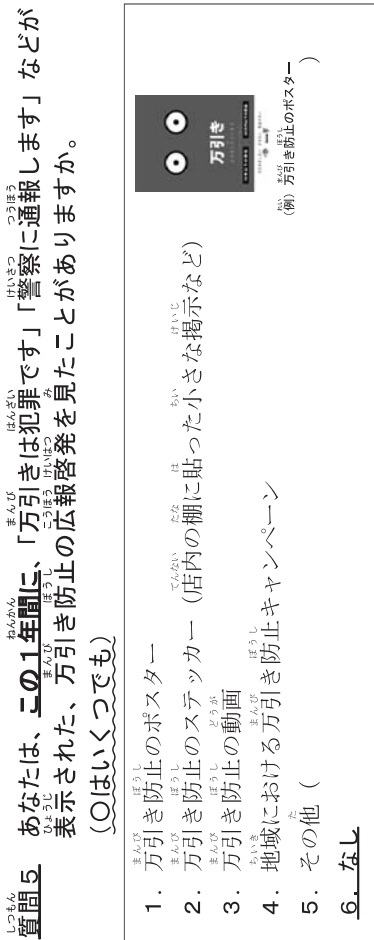 質問５ あなたは、この１年間に、「万引きは犯罪です」「警察に通報します」などが
表示された、万引き防止の広報啓発を見たことがありますか。
（○はいくつでも）
１．万引き防止のポスター
２．万引き防止のステッカー（店内の棚に貼った小さな掲示など）
３．万引き防止の動画
４．地域における万引き防止キャンペーン
５．その他（　　　）
６．なし
万引き
（例）万引き防止のポスター